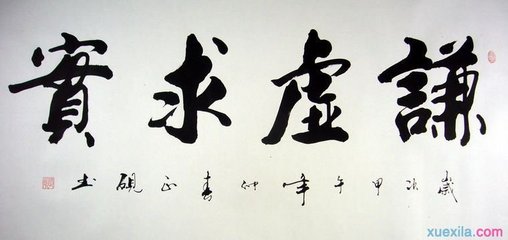 謙虛求實
歲次甲午年仲春正硯
学习啦
xuexila.com